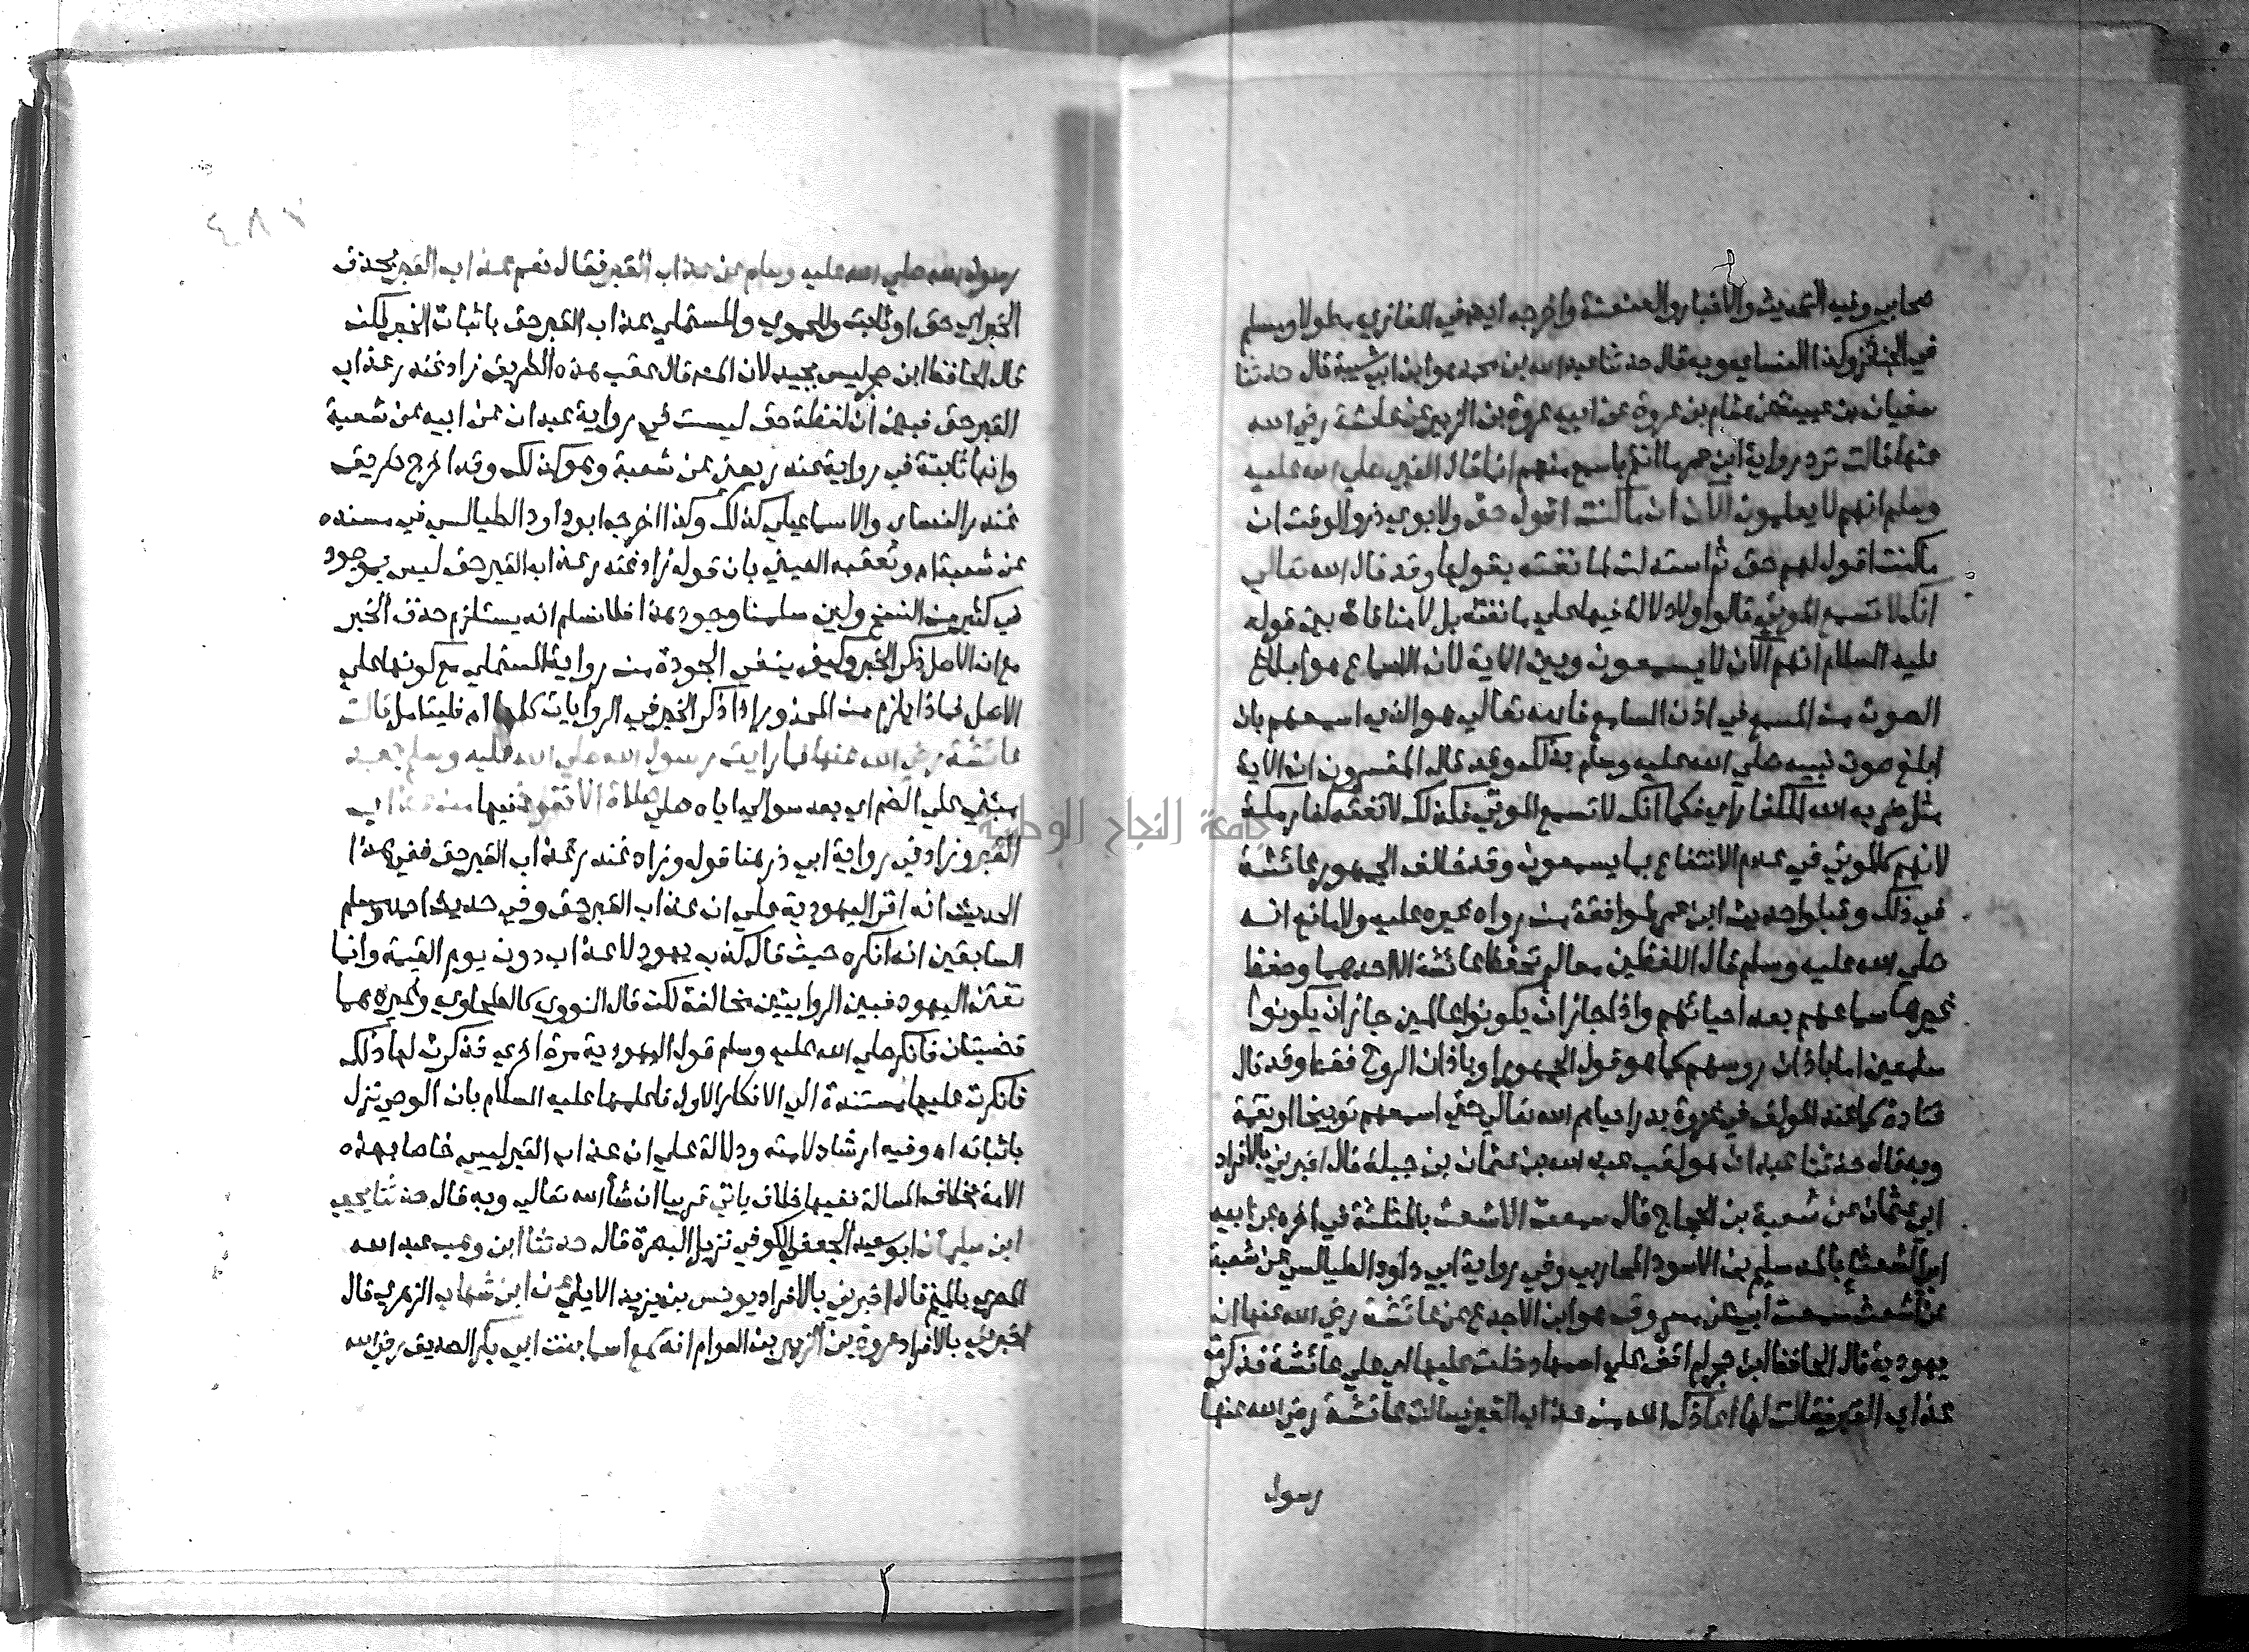 صحابي وفيه التحديث والاخبار والعنعنة واخرجه ايضا في المغازي مطولا ومسلم
في الجنائز وكذا النساي وبه قال حدثنا عبد الله بن محمد هو ابن ابي شيبة قال حدثنا
سفيان بن عيينة عن هشام بن عروة عن ابيه عروة بن الزبير عن عايشة رضي الله
عنها قالت ترد رواية ابن عمر ما انتم باسمع منهم انما قال النبي صلي الله عليه
وسلم انهم لا يعلمون الآن ان ما كنت اقول حق ولابوي ذر والوقت ان
ما كنت اقول لهم حق ثم استدلت لما نفته بقولها وقد قال الله تعالي
انك لا تسمع الموتي قالوا ولا دلالة فيها علي ما نفته بل لا منافاة بين قوله
عليه السلام انهم الآن لا يسمعون وبين الاية لان الاسماع هو ابلاغ
الصوت من المسمع في اذن السامع فالله تعالي هو الذي اسمعهم بان
ابلغ صوت نبيه صلي الله عليه وسلم بذلك وقد قال المفسرون ان الاية
مثل ضربه الله للكفار اي فكما انك لا تسمع الموتي فكذلك لا تفقه كفار مكة
لانهم كالموتي في عدم الانتفاع بما يسمعون وقد خالف الجمهور عائشة
في ذلك وقبلوا حديث ابن عمر لموافقة من رواه غيره عليه ولا مانع انه
صلي الله عليه وسلم قال اللفظين معا لم تحفظ عائشة الا احدهما وحفظ
غيرها سماعهم بعد احيائهم واذا جاز ان يكونوا عالمين جاز ان يكونوا
سامعين اما باذان روسهم كما هو قول الجمهور او باذان الروح فقط وقد قال
قتادة كما عند المولف في غزوة بدر احياهم الله تعالي حتي اسمعهم توبيخا او نقمة
وبه قال حدثنا عبدان هو لقب عبد الله بن عثمان بن جبلة قال اخبرني بالافراد
ابي عثمان عن شعبة بن الحجاج قال سمعت الاشعث بالمثلثة في اخره عن ابيه
ابي الشعثاء بالمد سليم بن الاسود المحاربي وفي رواية ابي داود الطيالسي عن شعبة
عن اشعث سمعت ابي عن مسروق هو ابن الاجدع عن عائشة رضي الله عنها ان
يهودية قال الحافظ ابن حجر لم اقف علي اسمها دخلت عليها اي علي عائشة فذكرت
عذاب القبر فقالت لها اعاذك الله من عذاب القبر فسالت عائشة رضي الله عنها
رسول
رسول الله صلي الله عليه وسلم عن عذاب القبر فقال نعم عذاب القبر بحذف
الخبر اي حق او ثابت وللحموي والمستملي عذاب القبر حق باثبات الخبر لكن
قال الحافظ ابن حجر ليس بجيد لان المص قال عقب هذه الطريق زاد غندر عذاب
القبر حق فبين ان لفظة حق ليست في رواية عبدان عن ابيه عن شعبة
وانها ثابتة في رواية غندر يعني عن شعبة وهو كذلك وقد اخرج طريق
غندر النساي والاسماعيلي كذلك وكذا اخرجه ابو داود الطيالسي في مسنده
عن شعبة اه وتعقبه العيني بان قوله زاد غندر عذاب القبر حق ليس بموجود
في كثير من النسخ ولين سلمنا وجود هذا فلا نسلم انه يستلزم حذف الخبر
مع ان الاصل ذكر الخبر وكيف ينفي الجودة من رواية المستملي مع كونها علي
الاصل فماذا يلزم من المحذور اذا ذكر الخبر في الروايات كلها اه فليتامل قالت
عائشة رضي الله عنها فما رايت رسول الله صلي الله عليه وسلم بعد
مبني علي الضم اي بعد سوالي اياه صلي صلاة الا تعوذ فيها من عذاب
القبر وزاد في رواية ابي ذر هنا قوله وزاد غندر عذاب القبر حق ففي هذا
الحديث انه اقر اليهودية علي ان عذاب القبر حق وفي حديث احمد ومسلم
السابقين انه انكره حيث قال كذب يهود لا عذاب دون يوم القيمة وانما
تفتن اليهود فبين الروايتين مخالفة لكن قال النووي كالطحاوي وغيره هما
قضيتان فانكر صلي الله عليه وسلم قول اليهودية مرة اخري فذكرت لها ذلك
فانكرت عليها مستندة الي الانكار الاول فاعلمها عليه السلام بان الوحي نزل
باثباته اه وفيه ارشاد لامته ودلالة علي ان عذاب القبر ليس خاصا بهذه
الامة بخلاف المسالة ففيها خلاف ياتي قريبا ان شاء الله تعالي وبه قال حدثنا يحيي
ابن سليمان ابو سعيد الجعفي الكوفي نزيل البصرة قال حدثنا ابن وهب عبد الله
المصري بالميم قال اخبرني بالافراد يونس بن يزيد الايلي عن ابن شهاب الزهري قال
اخبرني بالافراد عروة بن الزبير بن العوام انه سمع اسما بنت ابي بكر الصديق رضي الله
جامعة النجاح الوطنية